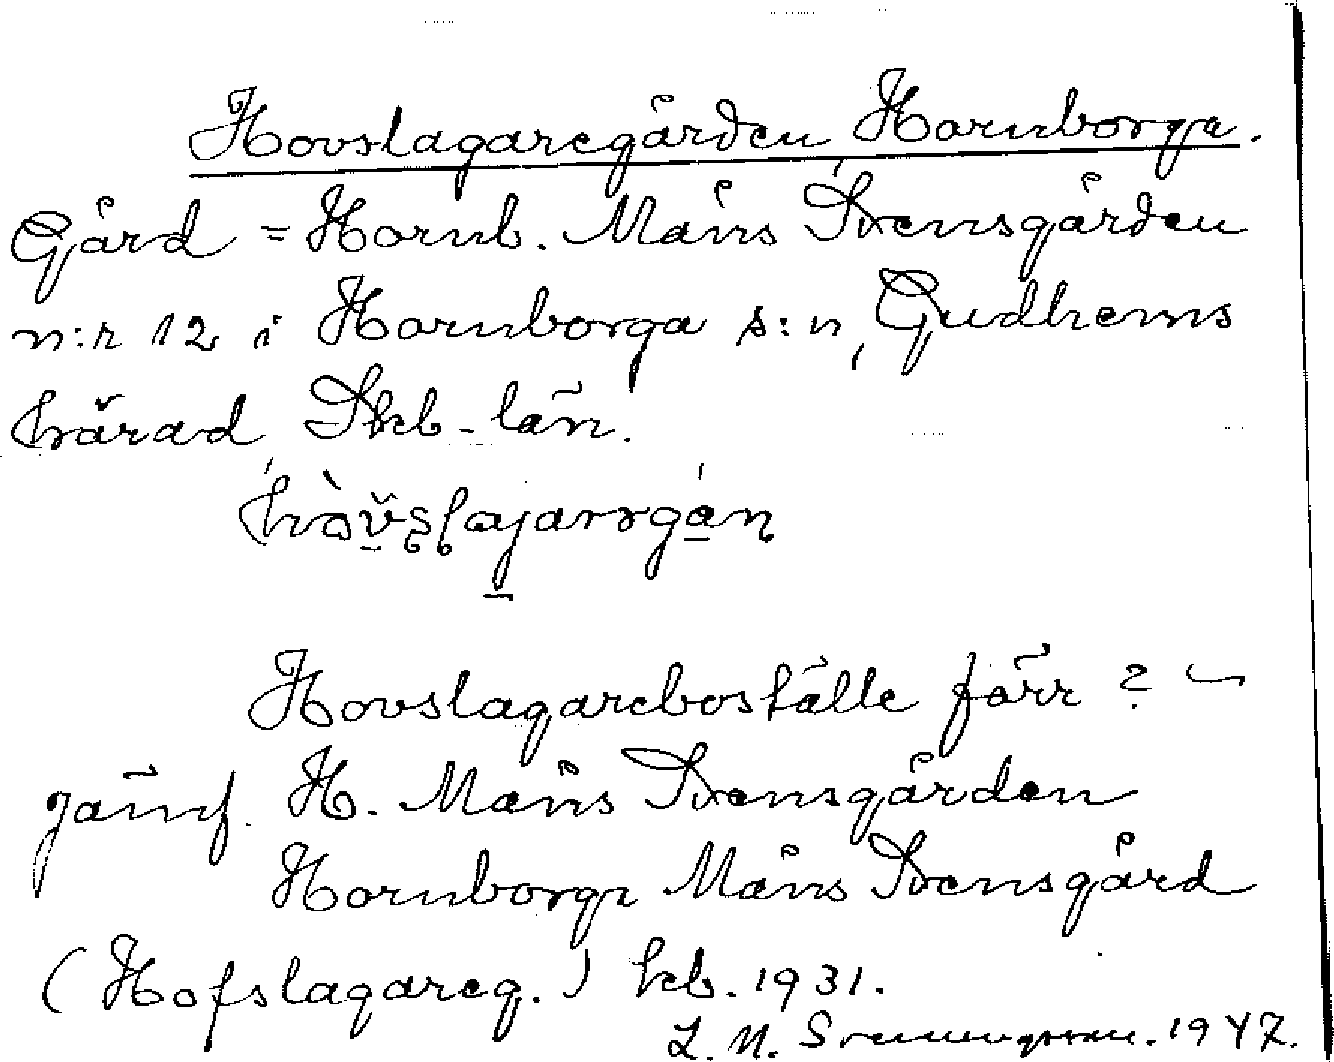 Hovslagaregården Hornborga.
Gård = Hornb. Måns Svensgården
n:r 12 i Hornborga s:n, Gudhems
härad, Skb-län.
Hovslagareboställe förr?
jämf. H. Måns Svensgården
Hornborga Måns Svensgård
(Hofslagareg.) kb. 1931.
L. N. 1947.